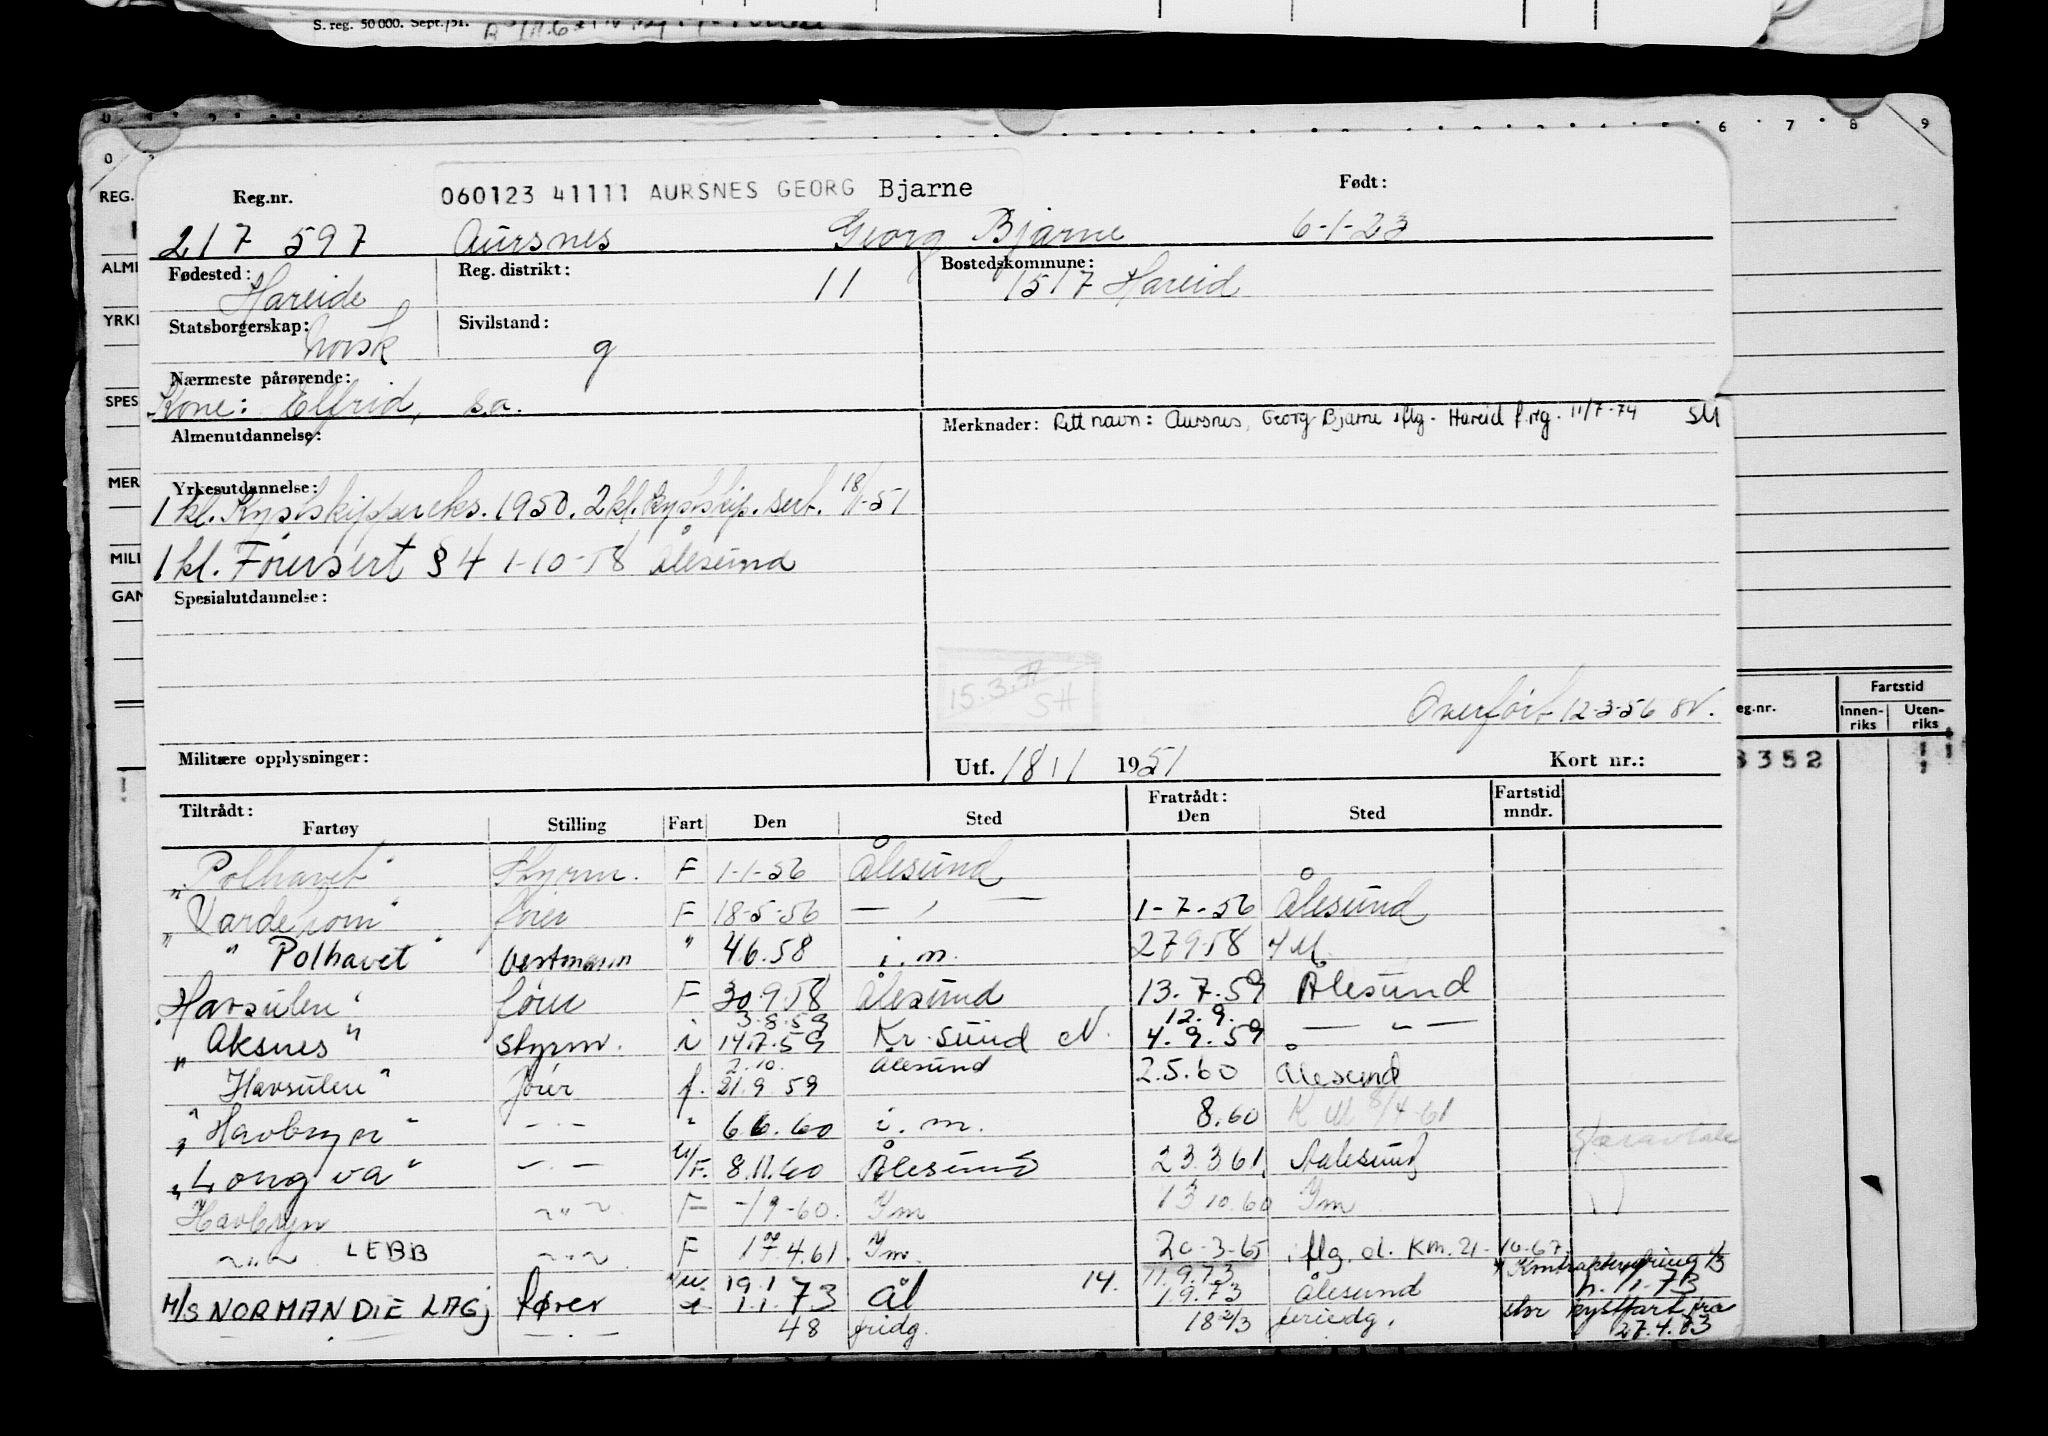 S. reg. 50 000. Sept./51.
0 6 7 8 9
REG.
ALME
YRKE
SPES
MER
MILI
GAN
Reg.nr. 060123 41111 AURSNES GEORG Bjarne Født:
217 597 Aursnes Georg Bjarne 6-1-23
Fødested: Reg. distrikt: Bostedskommune:
Hareide 11 1517 Hareid
Statsborgerskap: Sivilstand:
Norsk g
Nærmeste pårørende:
Kone: Elfrid, s.a.
Almenutdannelse:
Merknader: Rett navn: Aursnes, Georg Bjarne iflg. Hareid f.reg. 11/7-74 SM
Yrkesutdannelse:
1 kl. Kystskippereks. 1950. 2 kl. kystskip. sert. 18/1-51
1 kl. Førersert § 4 1-10-58 Ålesund
Spesialutdannelse:
15.3. SH
Overført 12-3-56
Militære opplysninger: Utf. 18/1 1951 Kort nr.:
eg.nr. Fartstid
Innenriks Utenriks
3352
Tiltrådt: Fratrådt: Fartstid
Fartøy Stilling Fart Den Sted Den Sted mndr.
"Polhavet" Styrm. F 1-1-56 Ålesund
"Vardehorn" fører F 18-5-56 — " — 1-7-56 Ålesund
"Polhavet" bestmann " 4.6.58 i.m. 27.9.58
"Havsulen" fører F 30.9.58 Ålesund 13.7.59 Ålesund
3.8.59 12.9.
"Aksnes" styrm. i 14.7.59 Kr. sund N. 4.9.59 — " —
2.10. Ålesund
"Havsulen" fører f. 21.9.59 2.5.60 Ålesund
"Havbryn" — " — " 6.6.60 i.m. 8.60 8/4-61
"Longva" — " — U/F. 8.11.60 Ålesund 23.3.61 Aalesund
Havbryn — " — F -/9-60. Im 13.10.60 Im
— " — LEBB — " — F 1.4.61. Im. 20-3-65 iflg. d. Km. 21-10-67
19.1 11.9.73 Kontraktendring
M/S NORMANDIE LAGJ fører i 1.1.73 Ål 14. 1.9.73 Ålesund 11-73
— " — — " — 48 fridg. 18 2/3 feriedg. stor kystfart fra
27.4.73